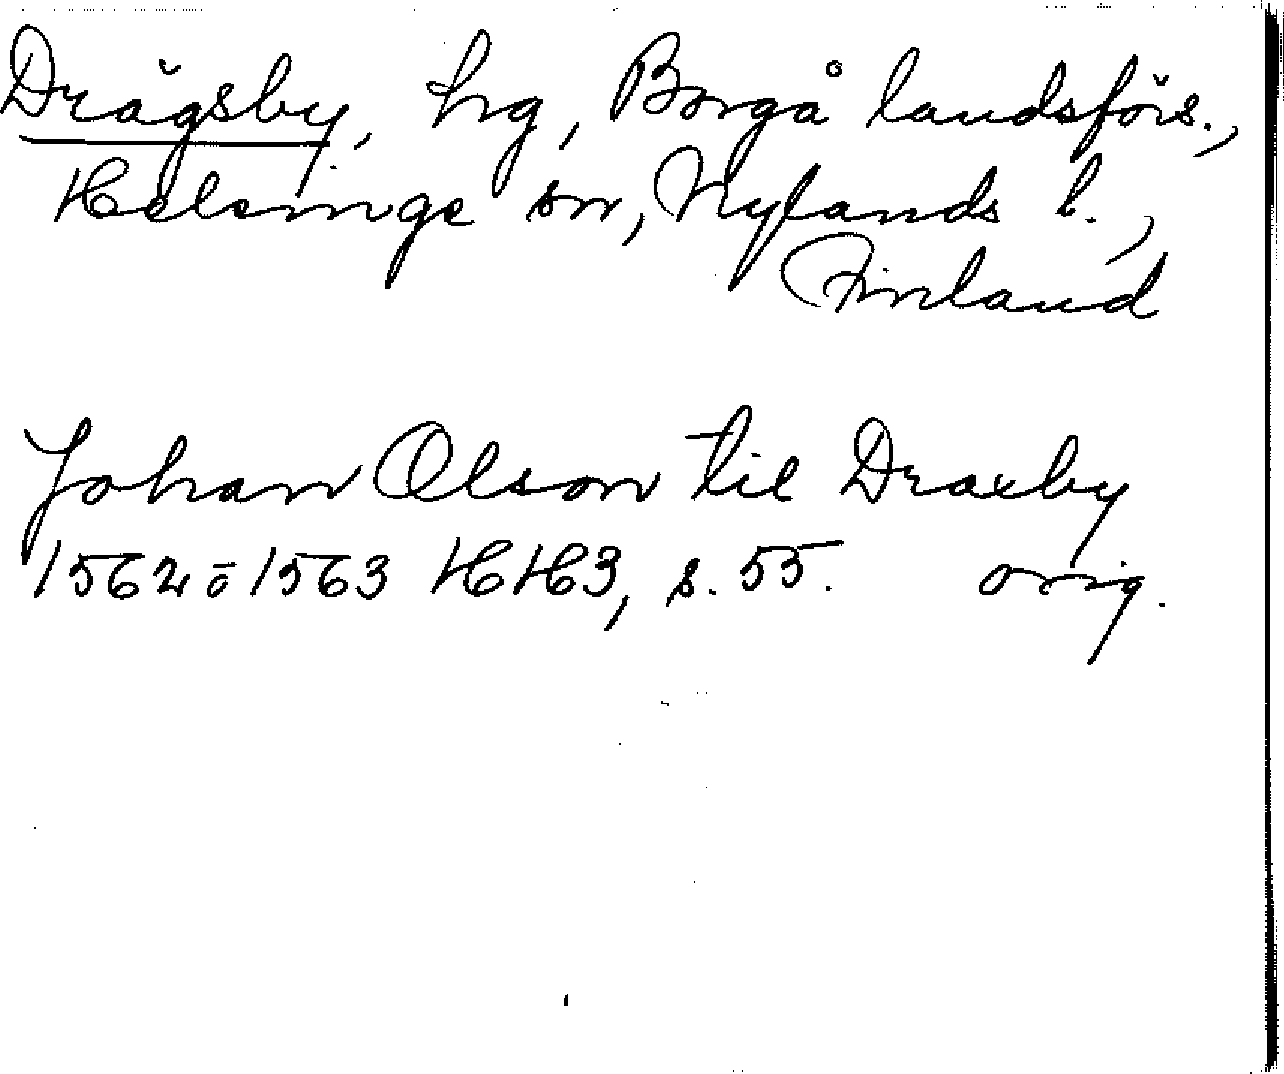 Drägsby, hg, Borgå landsförs.,
Helsinge sn, Nylands l.,
Finland
Johan Olson til Draxby
1562 ō 1563 HH3, s. 55. orig.